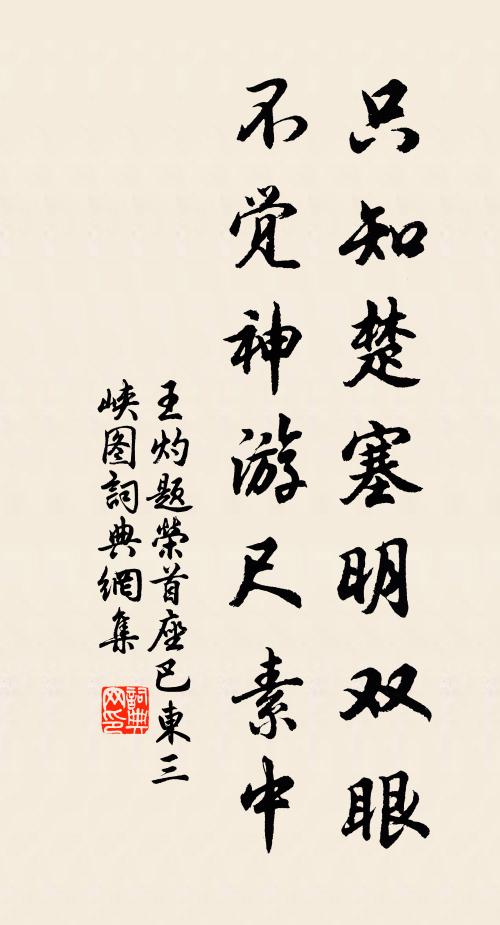 只知楚塞明双眼
不觉神游尺素中
王灼题荣首座巴東三
峡图詞典網集
詞典
网印